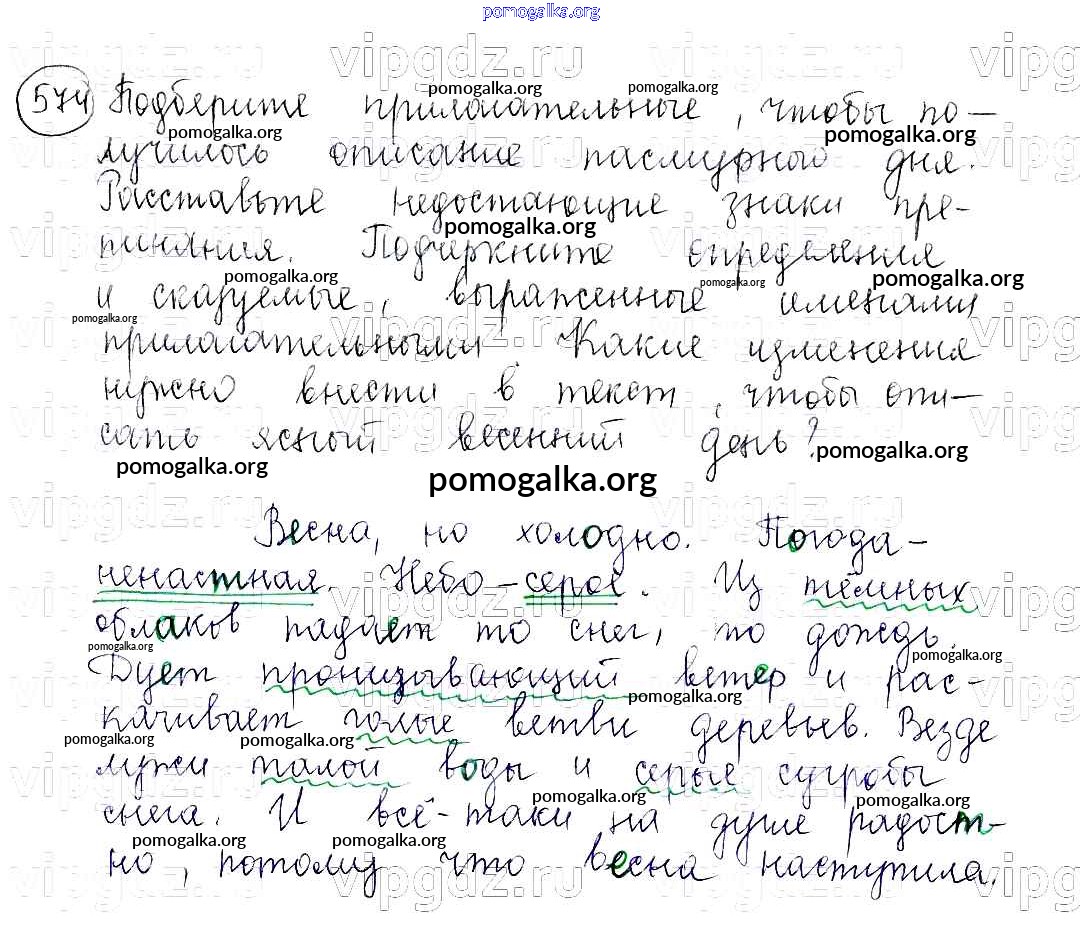 pomogalka.org
574 Подберите прилагательные, чтобы по-
лучилось описание пасмурного дня.
Расставьте недостающие знаки пре-
пинания. Подчеркните определения
и сказуемые, выраженные именами
прилагательными. Какие изменения
нужно внести в текст, чтобы опи-
сать ясный весенний день?
pomogalka.org
Весна, но холодно. Погода-
ненастная. Небо-серое. Из тёмных
облаков падает то снег, то дождь.
Дует пронизывающий ветер и рас-
качивает голые ветви деревьев. Везде
лужи талой воды и серые сугробы
снега. И всё-таки на душе радост-
но, потому что весна наступила.